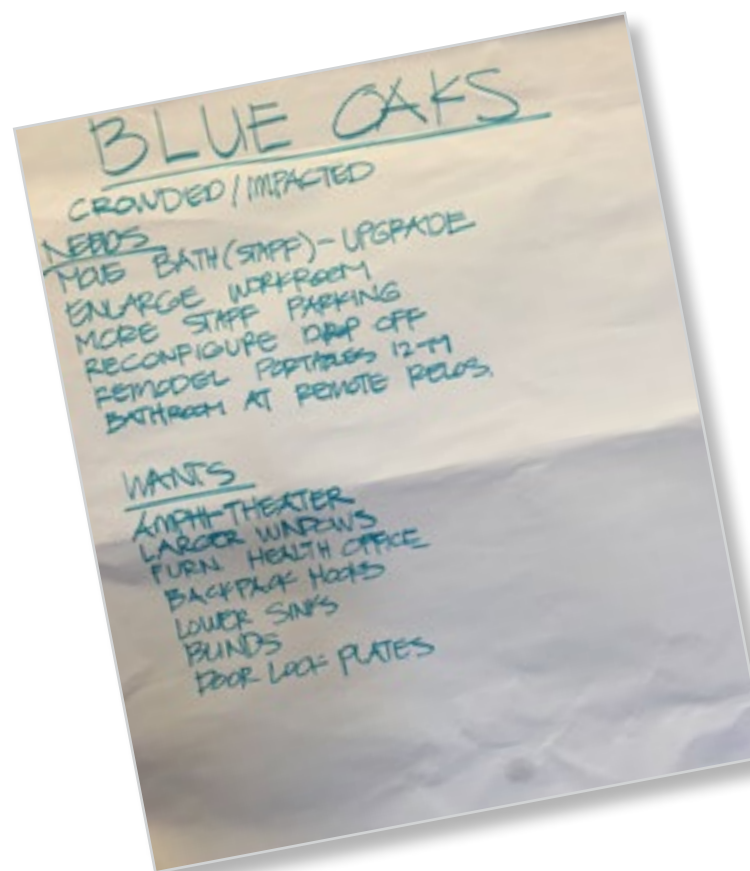 BLUE OAKS
CROWDED/IMPACTED
NEEDS
MOVE BATH (STAFF) - UPGRADE
ENLARGE WORKROOM
MORE STAFF PARKING
RECONFIGURE DROP OFF
REMODEL PORTABLES 12-
BATHROOM AT REMOTE RELOS.
WANTS
AMPHI-THEATER
LARGER WINDOWS
FURN HEALTH OFFICE
BACKPACK HOOKS
LOWER SINKS
BLINDS
DOOR LOCK PLATES